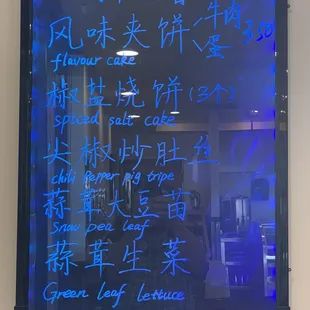 风味夹饼(牛肉
蛋
flavour cake
椒盐烧饼(3个)
spiced salt cake
尖椒炒肚丝
chili pepper pig tripe
蒜茸大豆苗
Snow pea leaf
蒜茸生菜
Green leaf lettuce